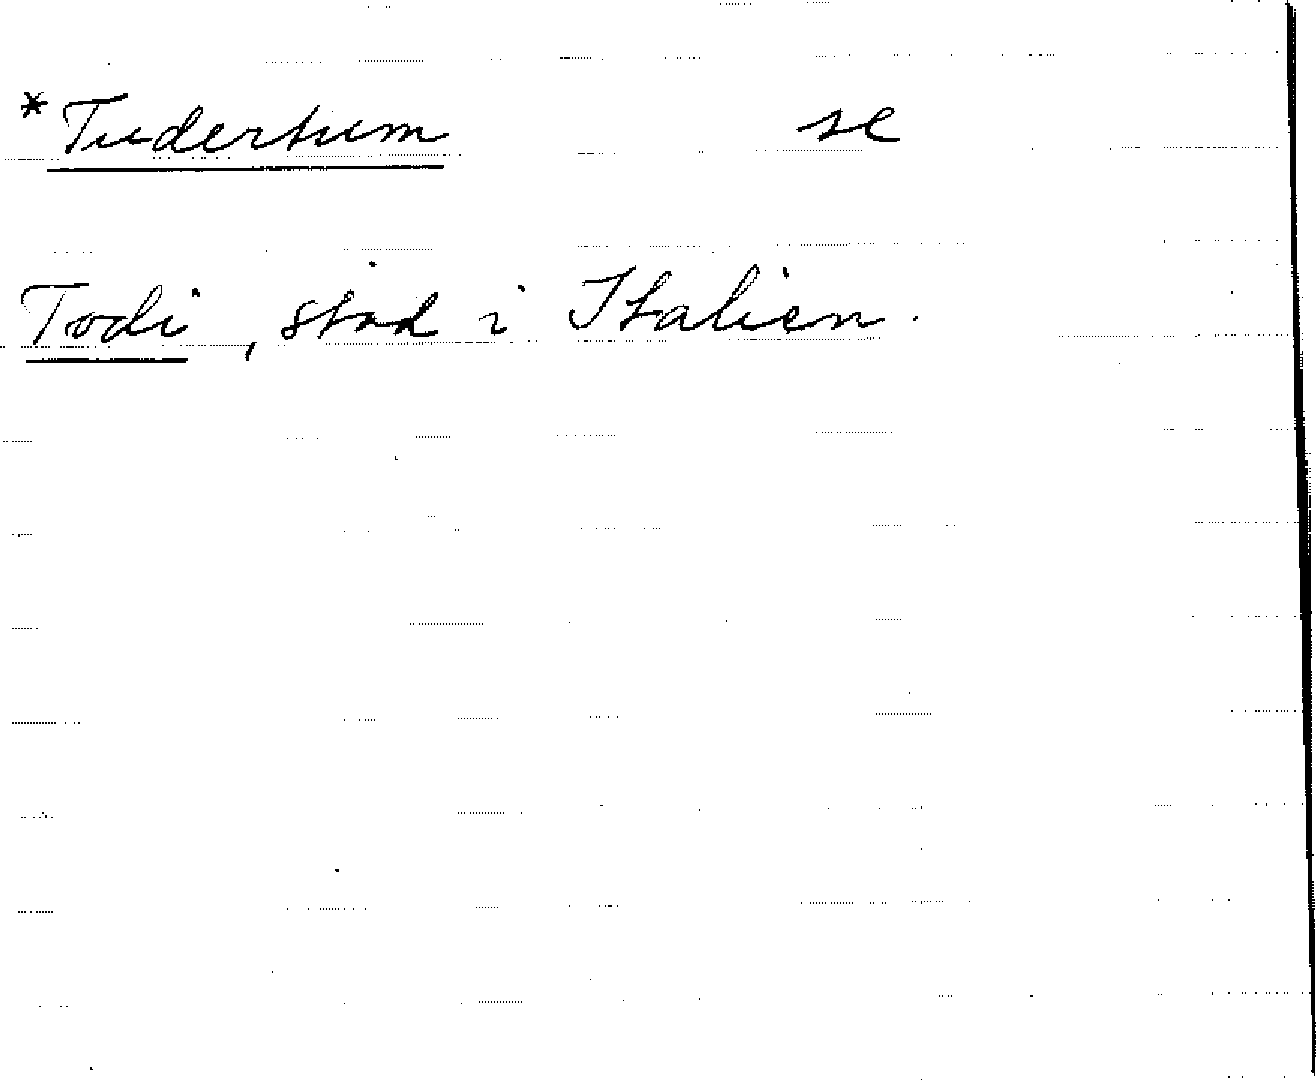 *Tudertum se
Todi, stad i Italien.